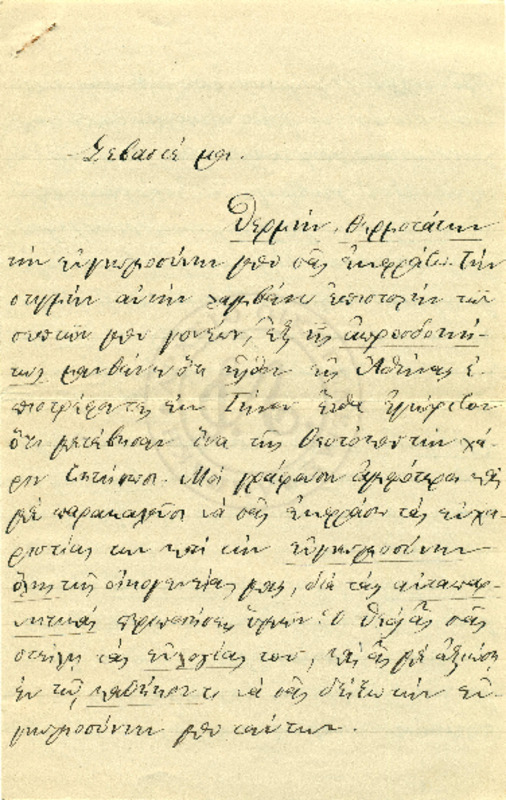 Σεβαστέ μοι.
Θερμήν, θερμοτάτην
τὴν εὐγνωμοσύνην μου σᾶς ἐκφράζω. Τὴν
στιγμὴν αὐτὴν λαμβάνω ἐπιστολὴν τῶν
σεπτῶν μου γονέων, ἐξ ἧς ἀπροσδοκή-
τως μανθάνω ὅτι ἦλθον εἰς Ἀθήνας ἐ-
πιστρέφοντες ἐκ Τήνου ἔνθα ἐγνώριζον
ὅτι μετέβησαν ἵνα τῆς Θεοτόκου τὴν χά-
ριν ζητήσωσι. Μοὶ γράφουσιν ἀμφότεροι καὶ
μὲ παρακαλοῦσι νὰ σᾶς ἐκφράσω τὰς εὐχα-
ριστίας των καὶ τὴν εὐγνωμοσύνην
ὅλης τῆς οἰκογενείας μας, διὰ τὰς
περιποιήσεις ὑμῶν. Ὁ Θεὸς ἂς σᾶς
στείλῃ τὰς εὐλογίας του, καὶ ἂς μὲ ἀξιώσῃ
ἐν τῷ καθήκοντι νὰ σᾶς δείξω τὴν εὐ-
γνωμοσύνην μου ταύτην.